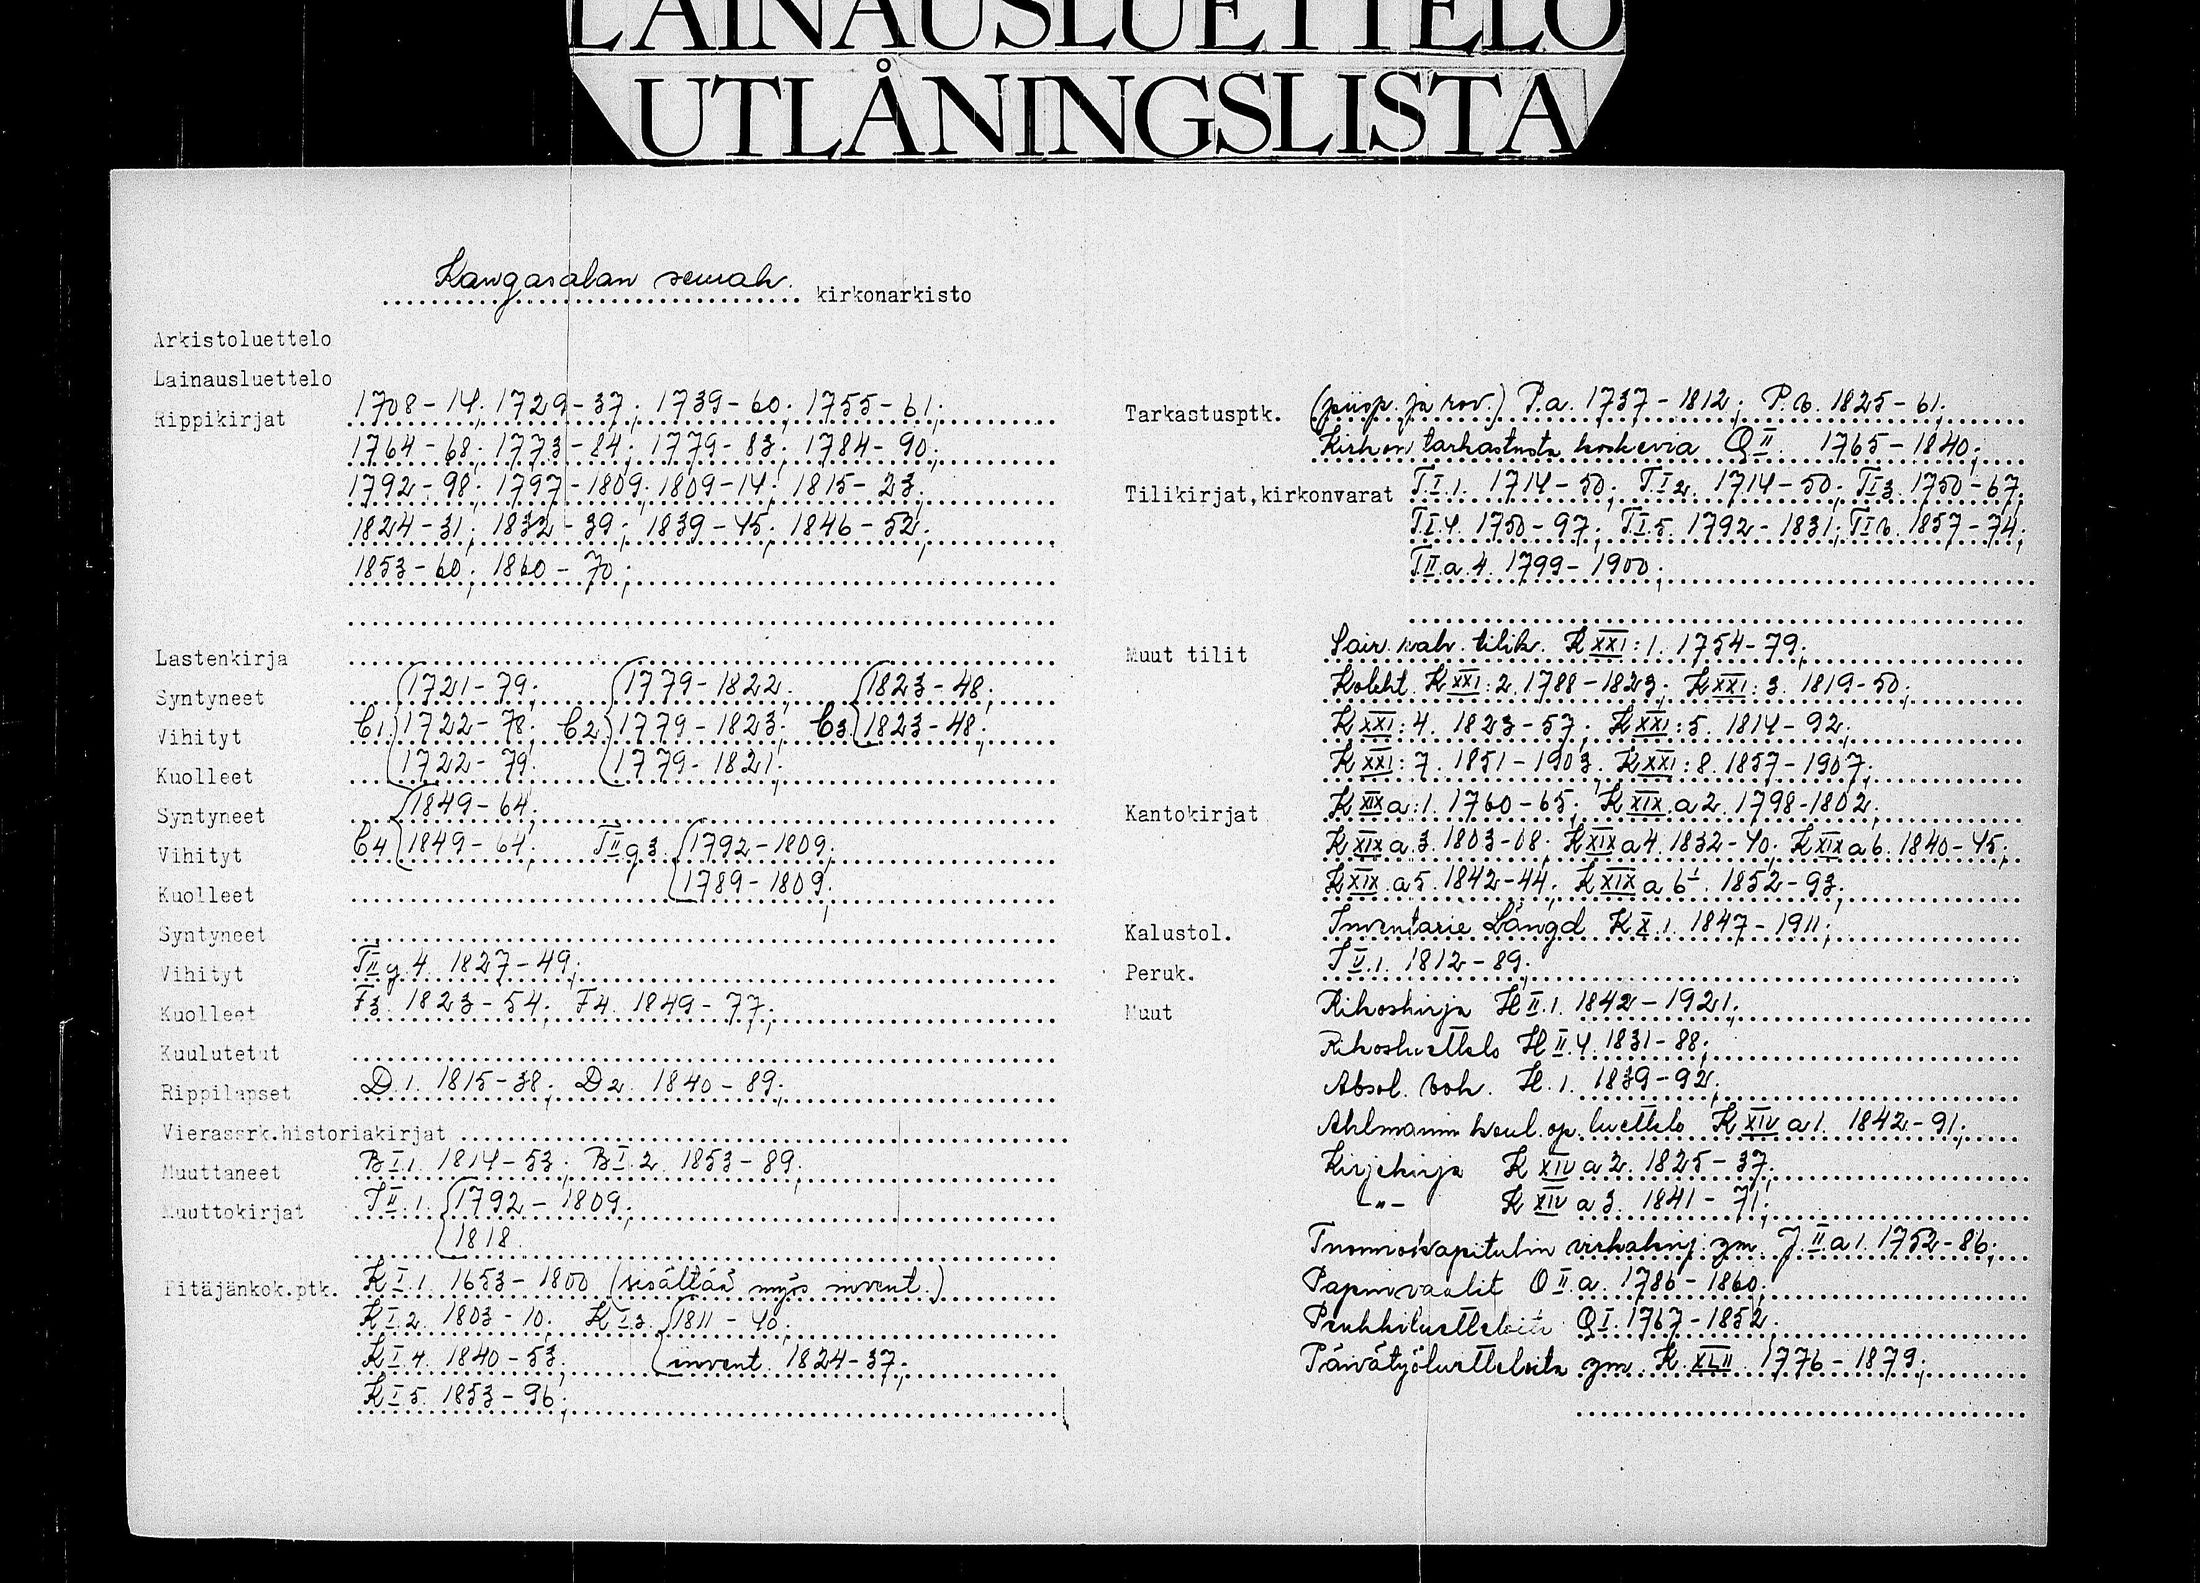 LAINAUSLUETTELO
UTLÅNINGSLISTA
Kangasalan seurak. kirkonarkisto
Arkistoluettelo
Lainausluettelo
Rippikirjat 1708-14; 1729-37; 1739-60; 1755-61;
1764-68; 1773-84; 1779-83; 1784-90;
1792-98; 1797-1809; 1809-14; 1815-23;
1824-31; 1832-39; 1839-45; 1846-52;
1853-60; 1860-70;
Lastenkirja
Syntyneet 1721-79; 1779-1822; 1823-48;
Vihityt C1. 1722-78; C2 1779-1823; C3 1823-48;
Kuolleet 1722-79; 1779-1821;
Syntyneet 1849-64;
Vihityt C4 1849-64; TII g 3. 1792-1809;
Kuolleet 1789-1809;
Syntyneet
Vihityt TII g. 4. 1827-49;
Kuolleet F3. 1823-54; F4. 1849-77;
Kuulutetut
Rippilapset D.1. 1815-38; D2. 1840-89;
Vierassrk.historiakirjat
Muuttaneet BI.1. 1814-53; BI.2. 1853-89;
Muuttokirjat TII.1. 1792-1809;
1818.
Pitäjänkok.ptk. KI.1. 1653-1800 (sisältää myös invent.)
KI.2. 1803-10; KI.3. 1811-40;
KI.4. 1840-53; invent. 1824-37;
KI5. 1853-96;
Tarkastusptk. (piisp. ja rov.) P.a. 1737-1812; P.b. 1825-61;
Kirkon tarkastusta koskevia QII. 1765-1840;
Tilikirjat,kirkonvarat TI.1. 1714-50; TI2. 1714-50; TI3. 1750-67;
TI.4. 1750-97; TI.5. 1792-1831; TI6. 1857-74;
TII.a.4. 1799-1900;
Muut tilit Sair. vaiv. tilik. KXXI:1. 1754-79;
Koleht. KXXI:2. 1788-1823; KXXI:3. 1819-50;
KXXI:4. 1823-57; KXXI:5. 1814-92;
KXXI:7. 1851-1903; KXXI:8. 1857-1907;
Kantokirjat KXIXa:1. 1760-65; KXIX.a2. 1798-1802;
KXIXa.3. 1803-08; KXIXa4. 1832-40; KXIXa6. 1840-45;
KXIX.a5. 1842-44; KXIXa6¹. 1852-93;
Kalustol. Inventarie Längd KX.1. 1847-1911;
Peruk. IV.1. 1812-89;
Muut Rikoskirja HII.1. 1842-1921;
Rikosluettelo HII.4. 1831-88;
Absol. bok. H.1. 1839-92;
Ahlmannin koul. op. luettelo KXIVa1. 1842-91;
Kirjekirja KXIVa2. 1825-37;
-"- KXIVa3. 1841-71;
Tuomiokapitulin virkakirj. ym. J.IIa1. 1752-86;
Papinvaalit OII.a. 1786-1860;
Penkkiluetteloita QI. 1767-1852;
Päivätyöluetteloita ym. K.XLII. 1776-1879;